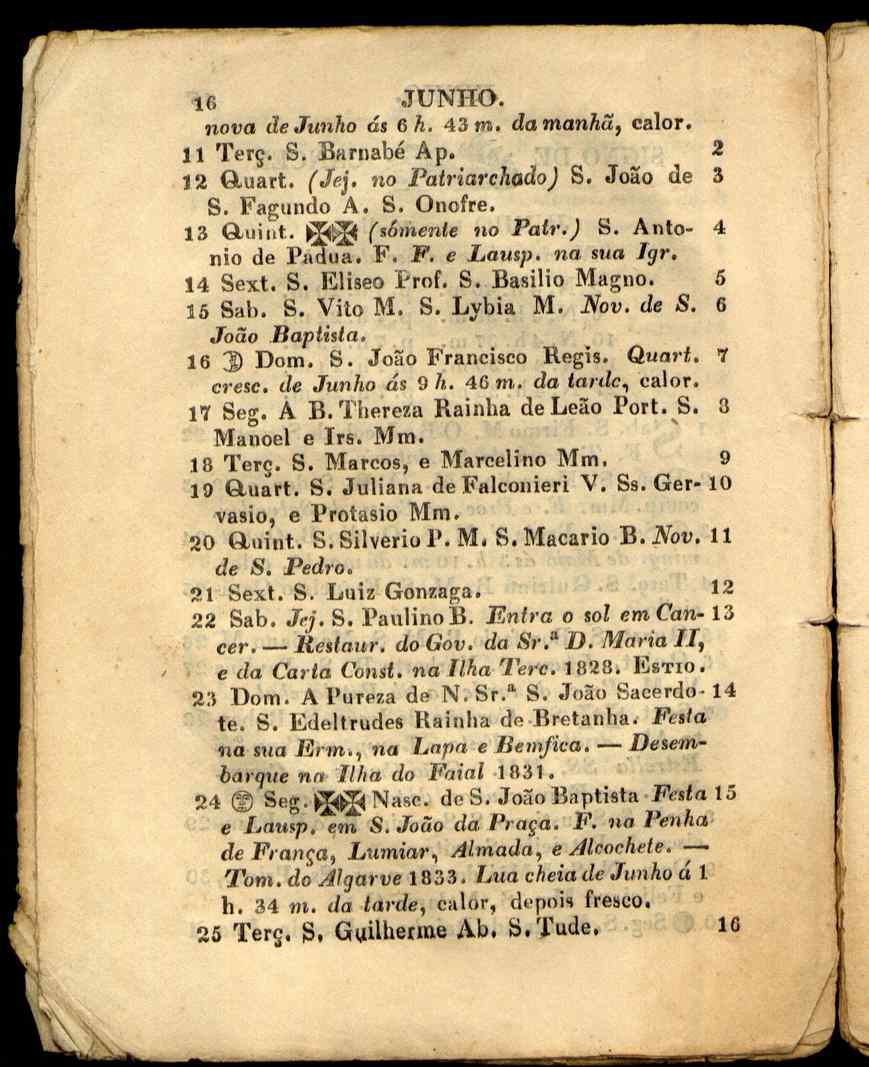 16 JUNHO.
nova de Junho ás 6 h. 43 m. da manhã, calor.
11 Terç. S. Barnabé Ap. 2
12 Quart. (Jej. no Patriarchado) S. João de 3
S. Fagundo A. S. Onofre.
13 Quint. ✠✠ (sómente no Patr.) S. Anto- 4
nio de Padua. F. F. e Lausp. na sua Igr.
14 Sext. S. Eliseo Prof. S. Basilio Magno. 5
15 Sab. S. Vito M. S. Lybia M. Nov. de S. 6
João Baptista.
16 ☽ Dom. S. João Francisco Regis. Quart. 7
cresc. de Junho ás 9 h. 46 m. da tarde, calor.
17 Seg. A B. Thereza Rainha de Leão Port. S. 8
Manoel e Irs. Mm.
18 Terç. S. Marcos, e Marcelino Mm. 9
19 Quart. S. Juliana de Falconieri V. Ss. Ger- 10
vasio, e Protasio Mm.
20 Quint. S. Silverio P. M. S. Macario B. Nov. 11
de S. Pedro.
21 Sext. S. Luiz Gonzaga. 12
22 Sab. Jej. S. Paulino B. Entra o sol em Can- 13
cer. — Restaur. do Gov. da Sr.ª D. Maria II,
e da Carta Const. na Ilha Terc. 1828. ESTIO.
23 Dom. A Pureza de N. Sr.ª S. João Sacerdo- 14
te. S. Edeltrudes Rainha de Bretanha. Festa
na sua Erm., na Lapa e Bemfica. — Desem-
barque na Ilha do Faial 1831.
24 Seg. ✠✠ Nasc. de S. João Baptista Festa 15
e Lausp. em S. João da Praça. F. na Penha
de França, Lumiar, Almada, e Alcochete. —
Tom. do Algarve 1833. Lua cheia de Junho á 1
h. 34 m. da tarde, calor, depois fresco.
25 Terç. S. Guilherme Ab. S. Tude. 16